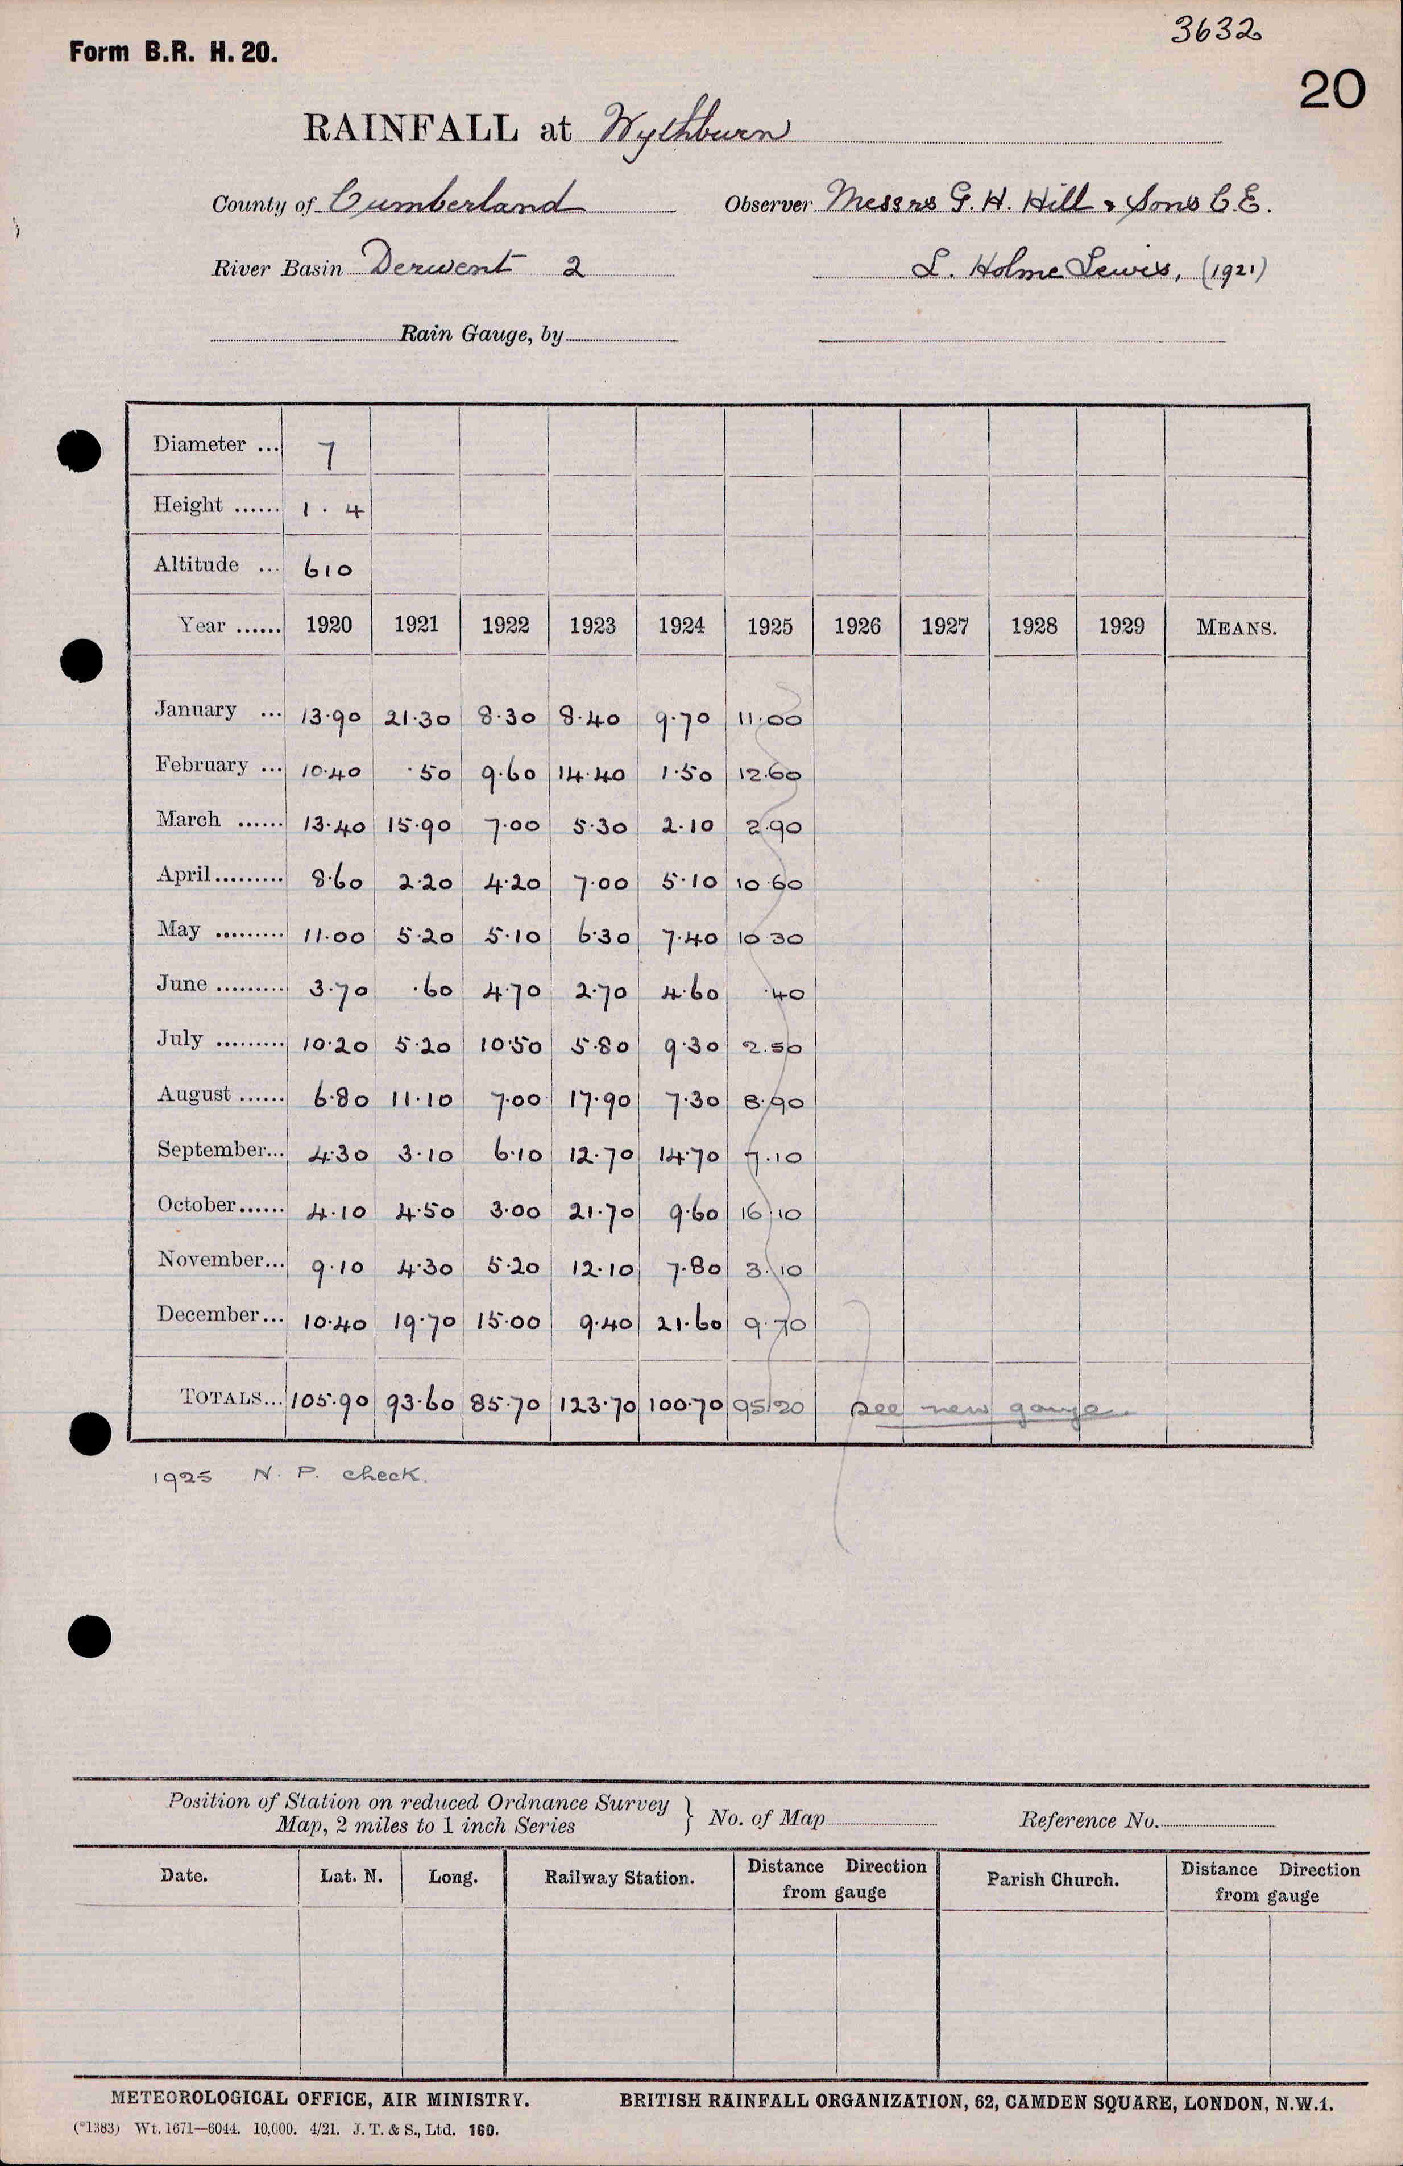 3632
Form B.R. H. 20.
20
RAINFALL at Wythburn
County of Cumberland Observer Messrs G. H. Hill & Sons C.E.
River Basin Derwent 2 L. Holme Lewis, (1921)
Rain Gauge, by
Diameter ... 7
Height ...... 1 . 4
Altitude ... 610
Year ...... 1920 1921 1922 1923 1924 1925 1926 1927 1928 1929 MEANS.
January ... 13.90 21.30 8.30 8.40 9.70 11.00
February ... 10.40 .50 9.60 14.40 1.50 12.60
March ...... 13.40 15.90 7.00 5.30 2.10 2.90
April ......... 8.60 2.20 4.20 7.00 5.10 10.60
May ......... 11.00 5.20 5.10 6.30 7.40 10.30
June ......... 3.70 .60 4.70 2.70 4.60 .40
July ......... 10.20 5.20 10.50 5.80 9.30 2.50
August ...... 6.80 11.10 7.00 17.90 7.30 8.90
September... 4.30 3.10 6.10 12.70 14.70 7.10
October...... 4.10 4.50 3.00 21.70 9.60 16.10
November... 9.10 4.30 5.20 12.10 7.80 3.10
December... 10.40 19.70 15.00 9.40 21.60 9.70
TOTALS... 105.90 93.60 85.70 123.70 100.70 95.20 see new gauge.
1925 N. P. check.
Position of Station on reduced Ordnance Survey
Map, 2 miles to 1 inch Series } No. of Map Reference No.
Date. Lat. N. Long. Railway Station. Distance Direction from gauge Parish Church. Distance Direction from gauge
METEOROLOGICAL OFFICE, AIR MINISTRY. BRITISH RAINFALL ORGANIZATION, 62, CAMDEN SQUARE, LONDON, N.W.1.
(*1383) Wt. 1671—6044. 10,000. 4/21. J. T. & S., Ltd. 160.